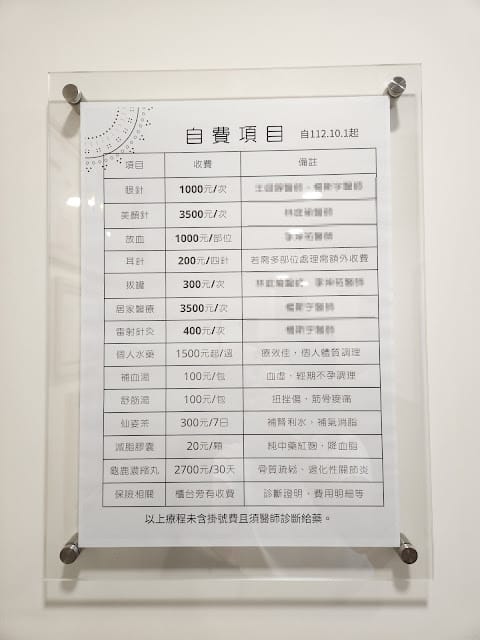 自費項目 自112.10.1起
項目 收費 備註
眼針 1000元/次
美顏針 3500元/次
放血 1000元/部位
耳針 200元/四針 若需多部位處理需額外收費
拔罐 300元/次
居家醫療 3500元/次
雷射針灸 400元/次
個人水藥 1500元起/週 療效佳，個人體質調理
補血湯 100元/包 血虛、經期不孕調理
舒筋湯 100元/包 扭挫傷，筋骨痠痛
仙姿茶 300元/7日 補腎利水，補氣消脂
減脂膠囊 20元/顆 純中藥紅麴，降血脂
龜鹿濃縮丸 2700元/30天 骨質疏鬆、退化性關節炎
保險相關 櫃台旁有收費 診斷證明、費用明細等
以上療程未含掛號費且須醫師診斷給藥。